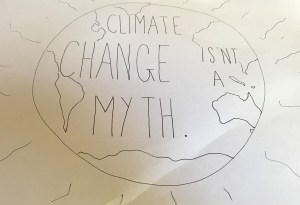 CLIMATE
CHANGE
IS'NT
A
MYTH.